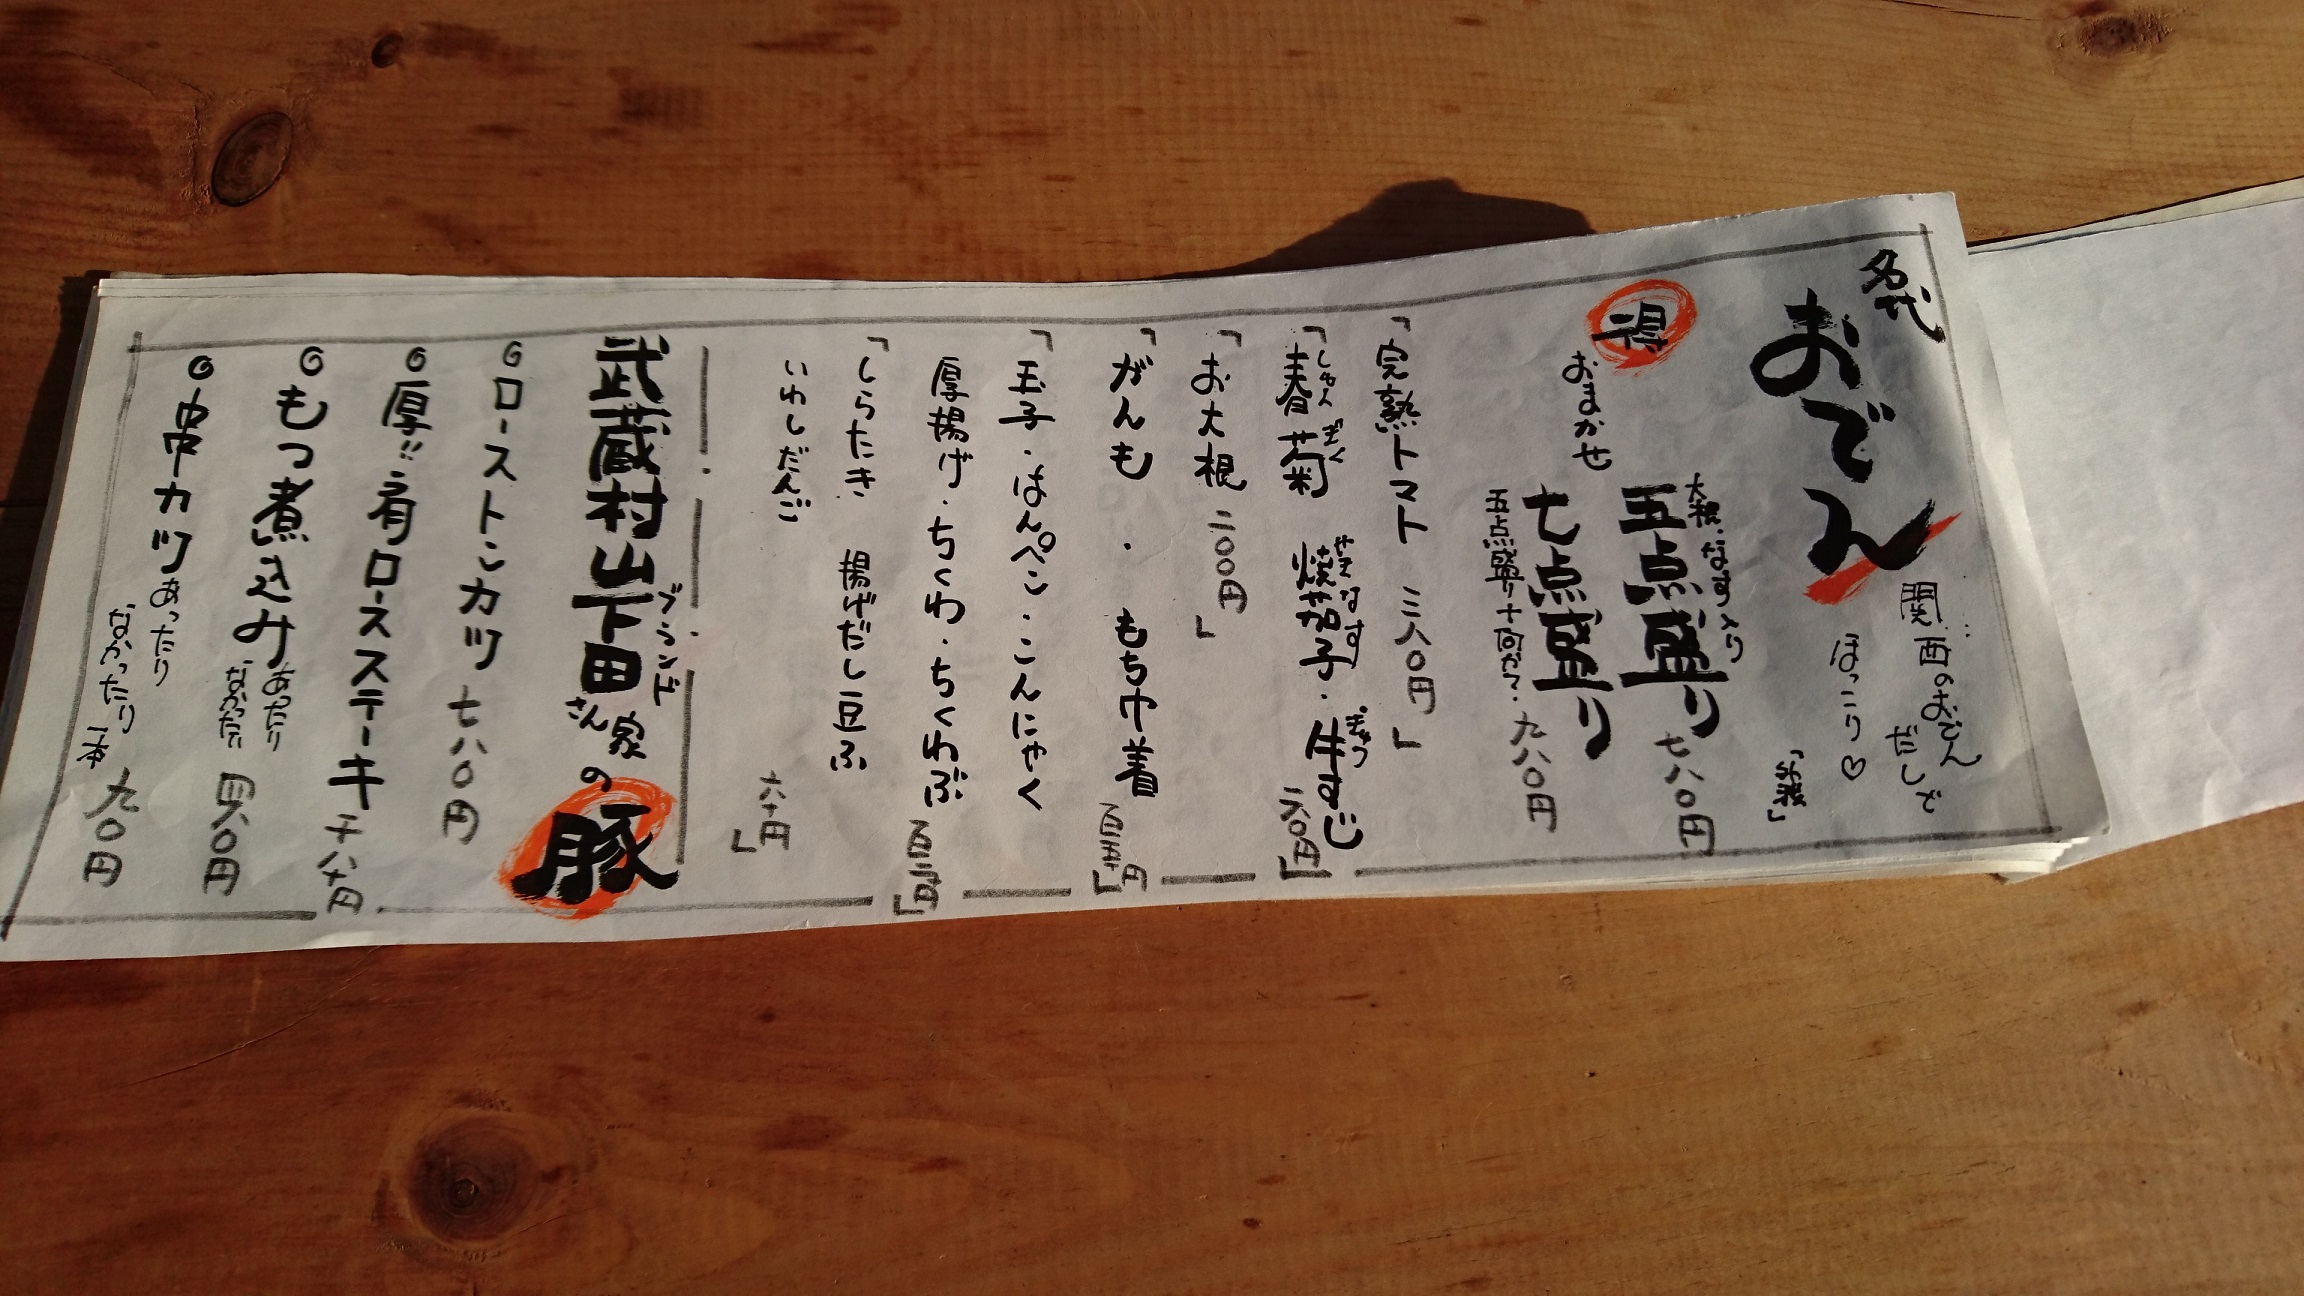 名代
おでん
関西のおでん
だしで
ほっこり♡
得
おまかせ
大根・なす入り
五点盛り 七八〇円
七点盛り 九八〇円
五点盛り+何かで・
「完熟トマト 三八〇円」
しゅんぎく やきなす ぎゅう
「春菊 焼茄子・牛すじ 二八〇円」
「お大根 二〇〇円」
「がんも・もち巾着 百五十円」
「玉子・はんぺん・こんにゃく
厚揚げ・ちくわ・ちくわぶ
「しらたき 揚げだし豆ふ
いわしだんご 六十円」
ブランド
武蔵村山下田さん家の豚
◎ローストンカツ 七八〇円
◎厚!!肩ロースステーキ 千八十円
◎もつ煮込み あったり なかったり 四八〇円
◎串カツ あったり なかったり 一本 九〇円